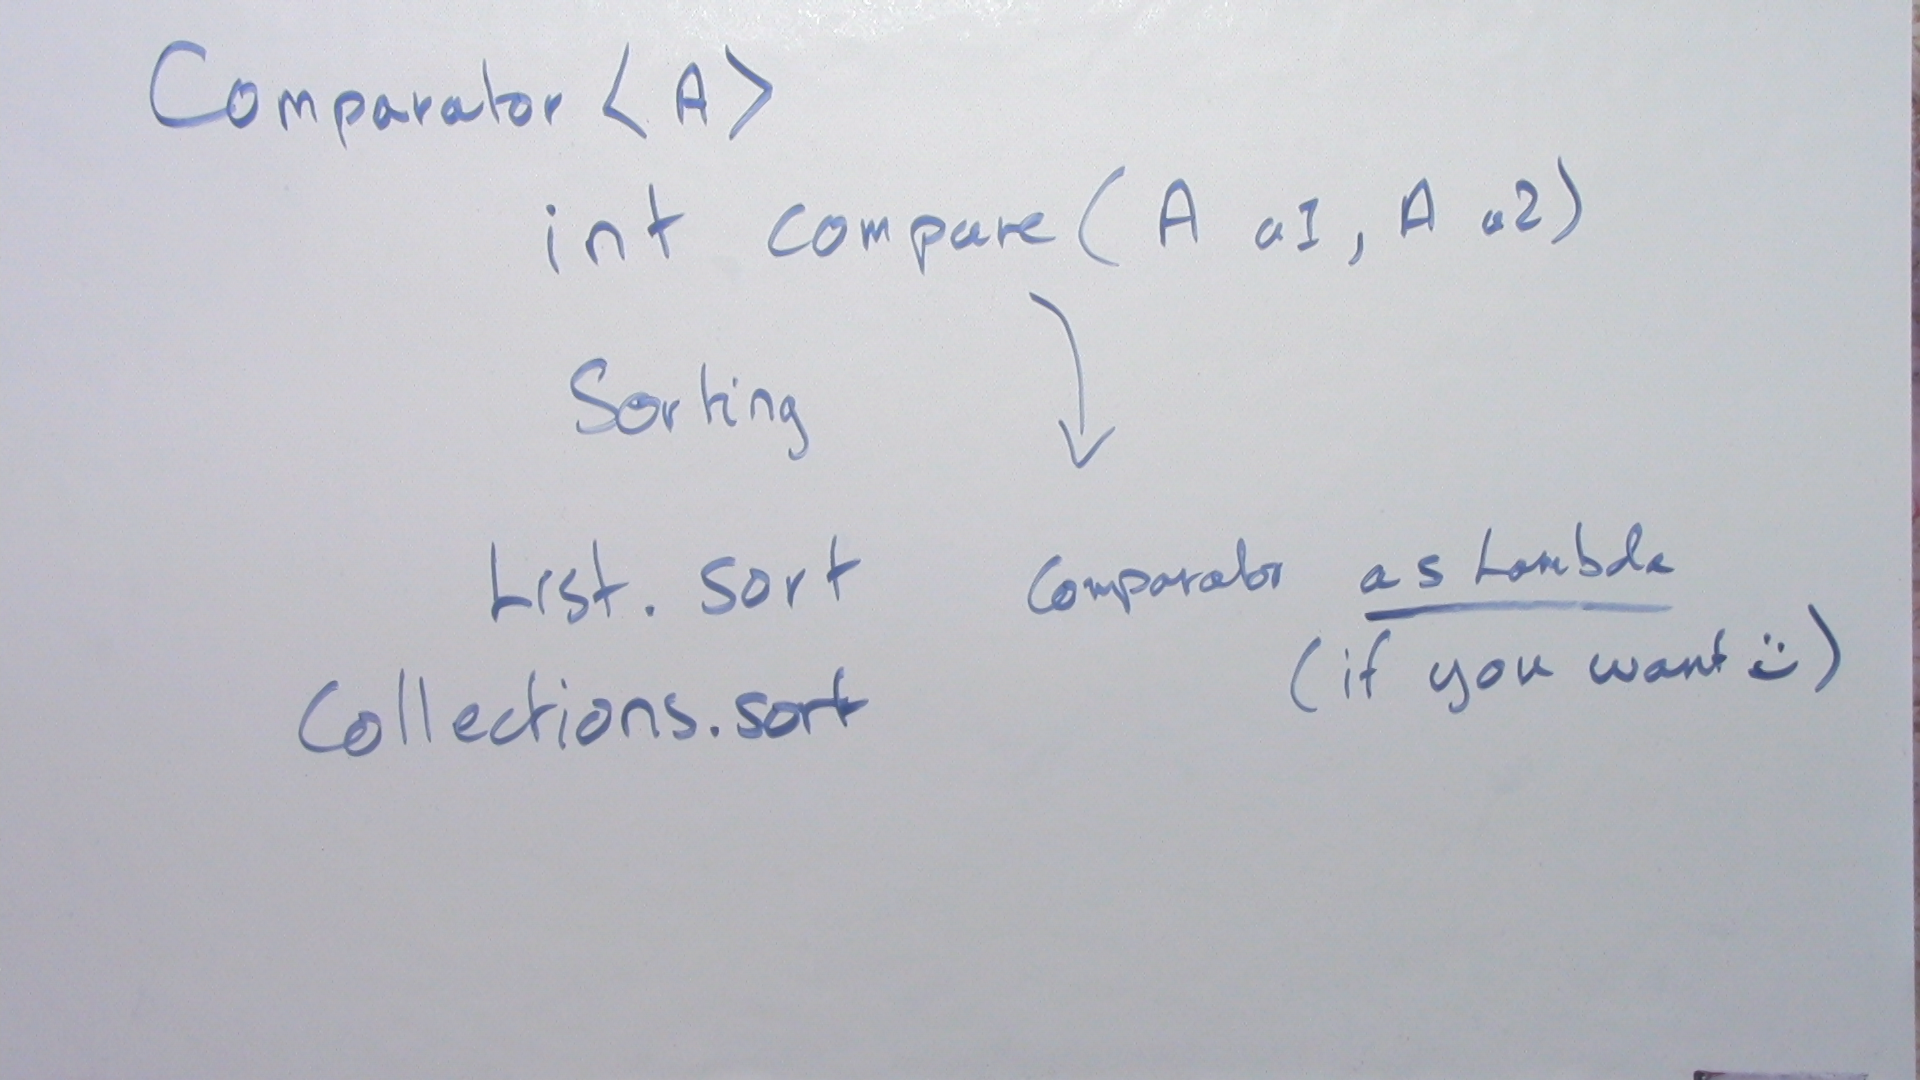 Comparator <A>
int compare(A a1, A a2)
Sorting
List.sort
Collections.sort
Comparator as Lambda
(if you want ü)